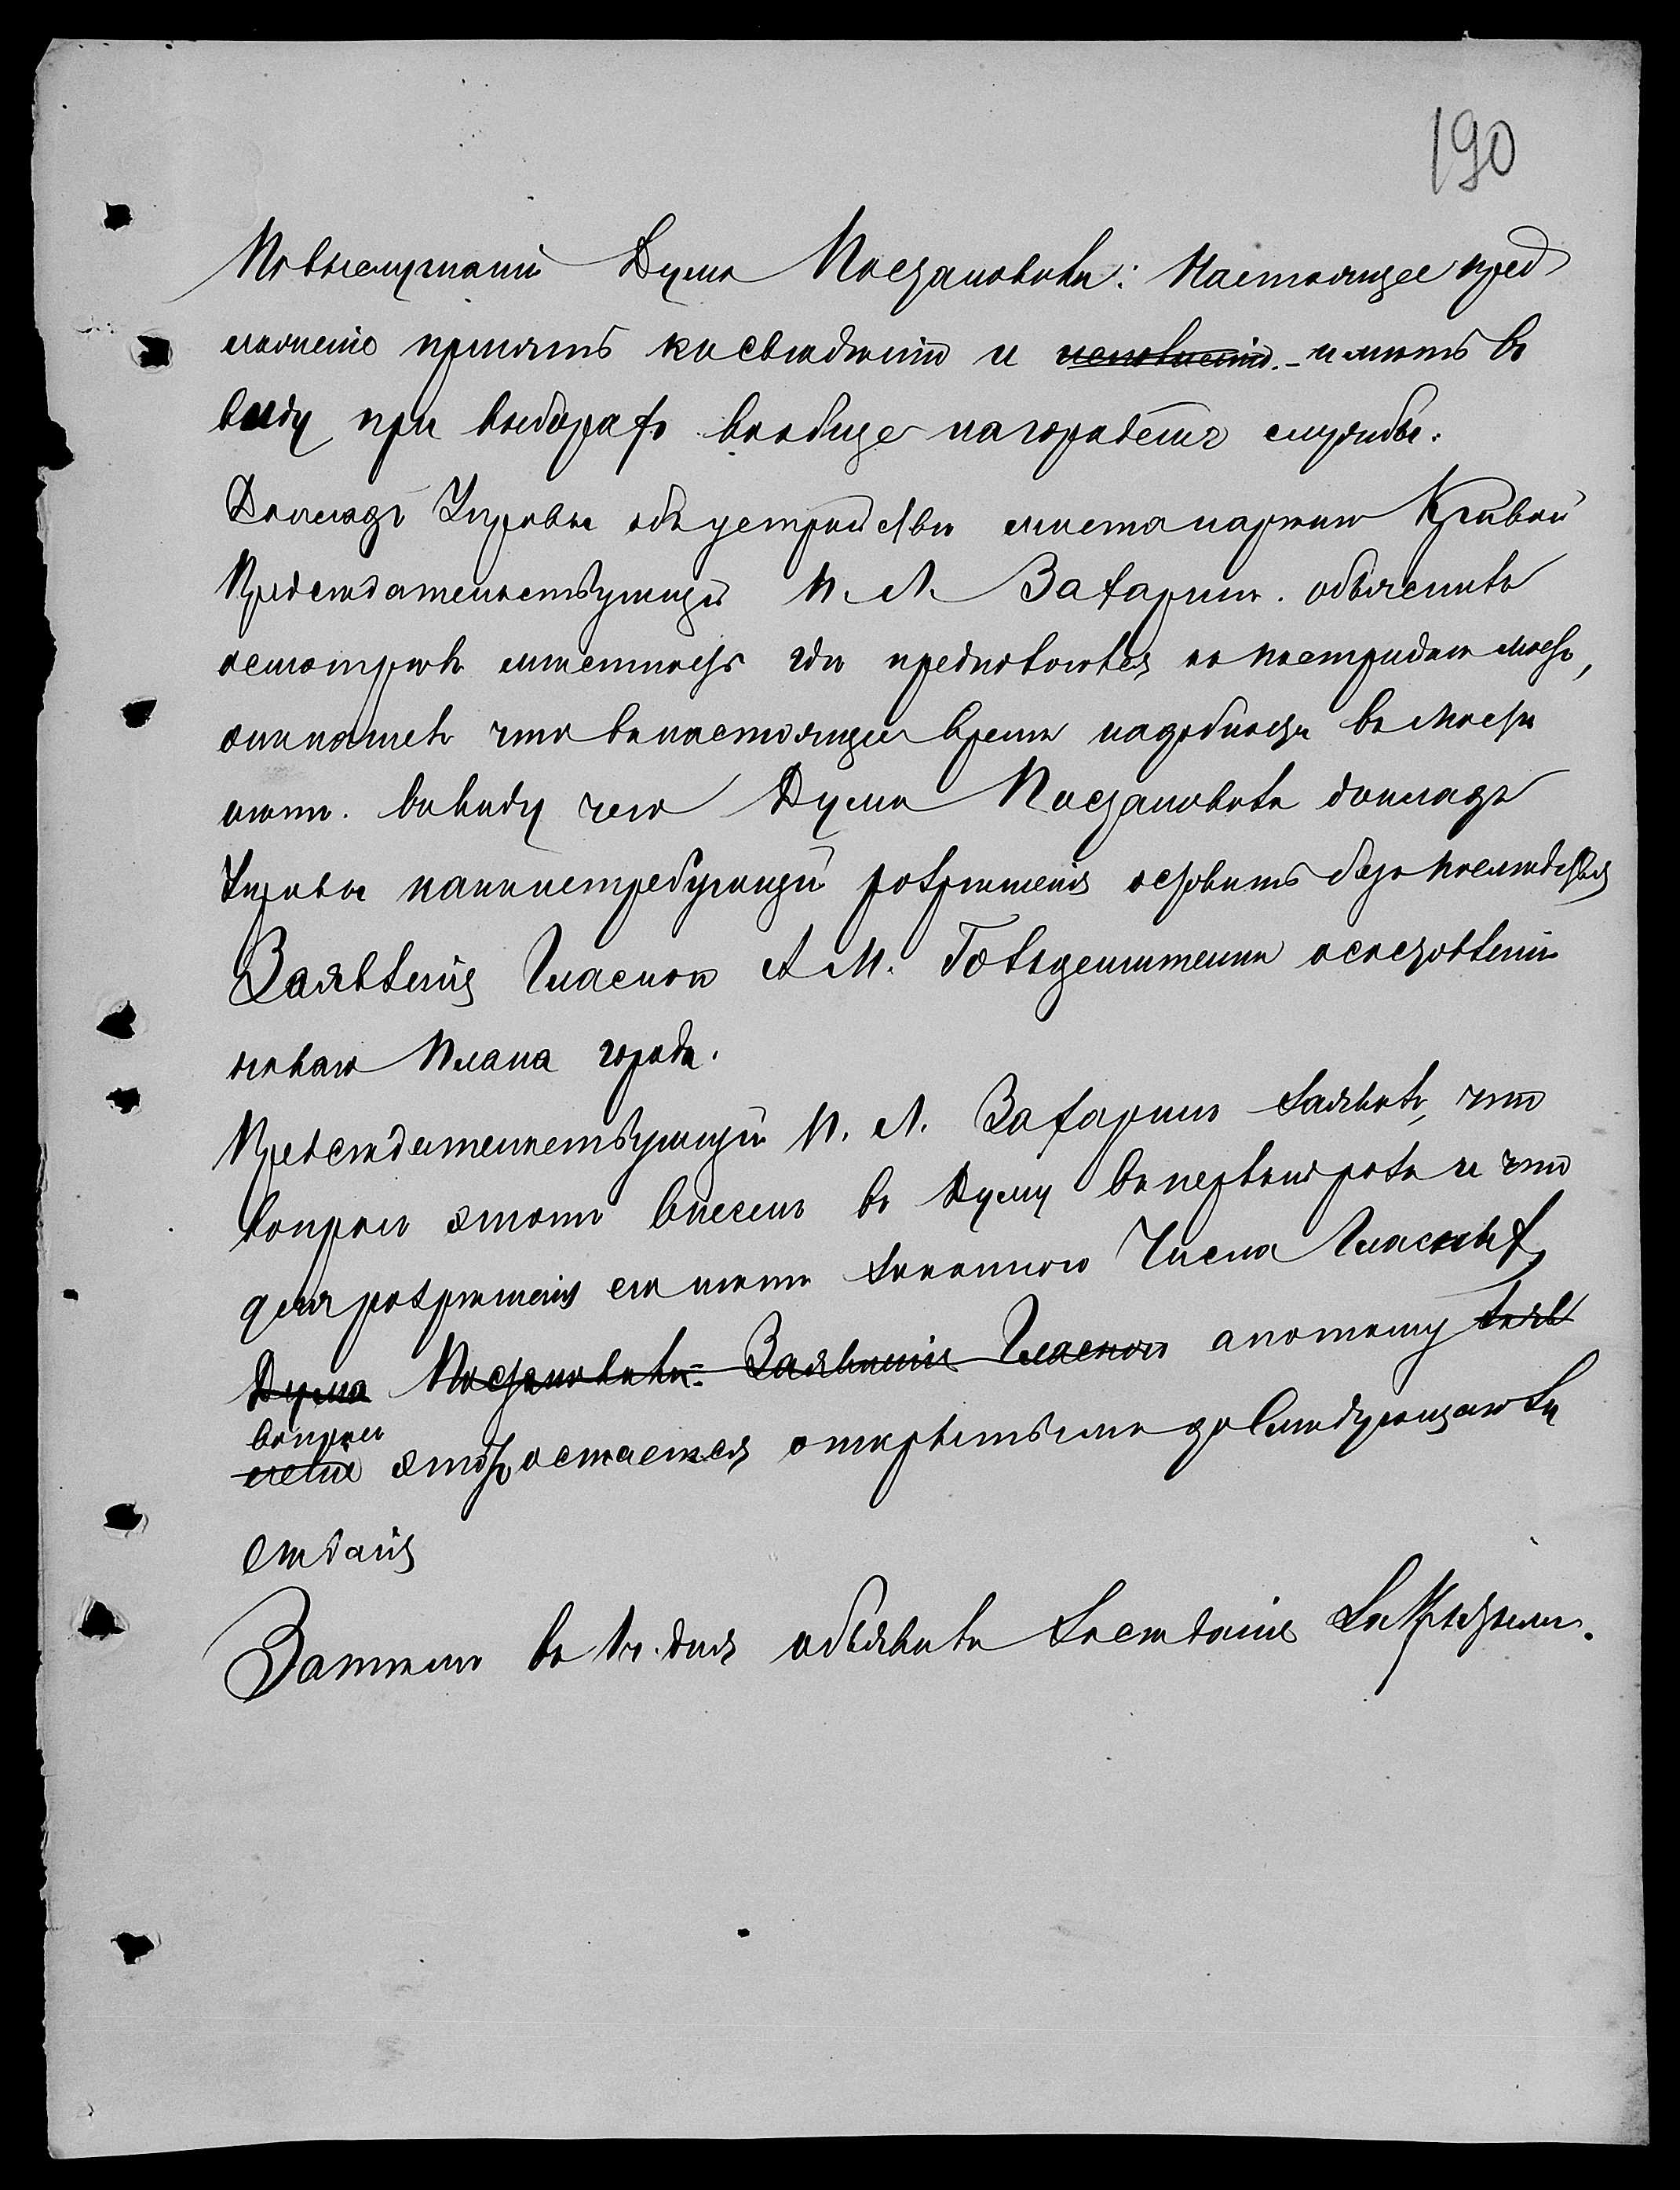 190
По выслушаніи Дума Постановила: Настоящее пред
ложеніе принять къ свѣдѣнію и исполненію. - имѣть въ
виду при выборахъ вообще на городскія службы.
Докладъ Управы объ устройствѣ моста на рѣчкѣ Кривой
Предсѣдательствующій П. Л. Захаринъ. объяснилъ
осмотрѣлъ мѣстность гдѣ предполагается къ постройкѣ мостъ,
оказалось что въ настоящее время надобности въ мостѣ
нѣтъ. Въ виду чего Дума Постановила докладъ
Управы какъ нетребующій разрѣшенія оставить безъ послѣдствія
Заявленія Гласнаго А М. Гольденштейна о составленіи
новаго Плана города.
Предсѣдательствующій П. Л. Захаринъ заявилъ, что
вопросъ этотъ внесенъ въ Думу въ первый разъ и что
для разрѣшенія его нѣтъ законнаго Числа Гласныхъ,
Дума Постановила: Заявленіе Гласнаго а потому заяв
вопросъ
леніе этотъ остается открытымъ до Слѣдующаго За
сѣданія
Затѣмъ въ 1 ч. дня объявилъ Засѣданіе Закрытымъ.